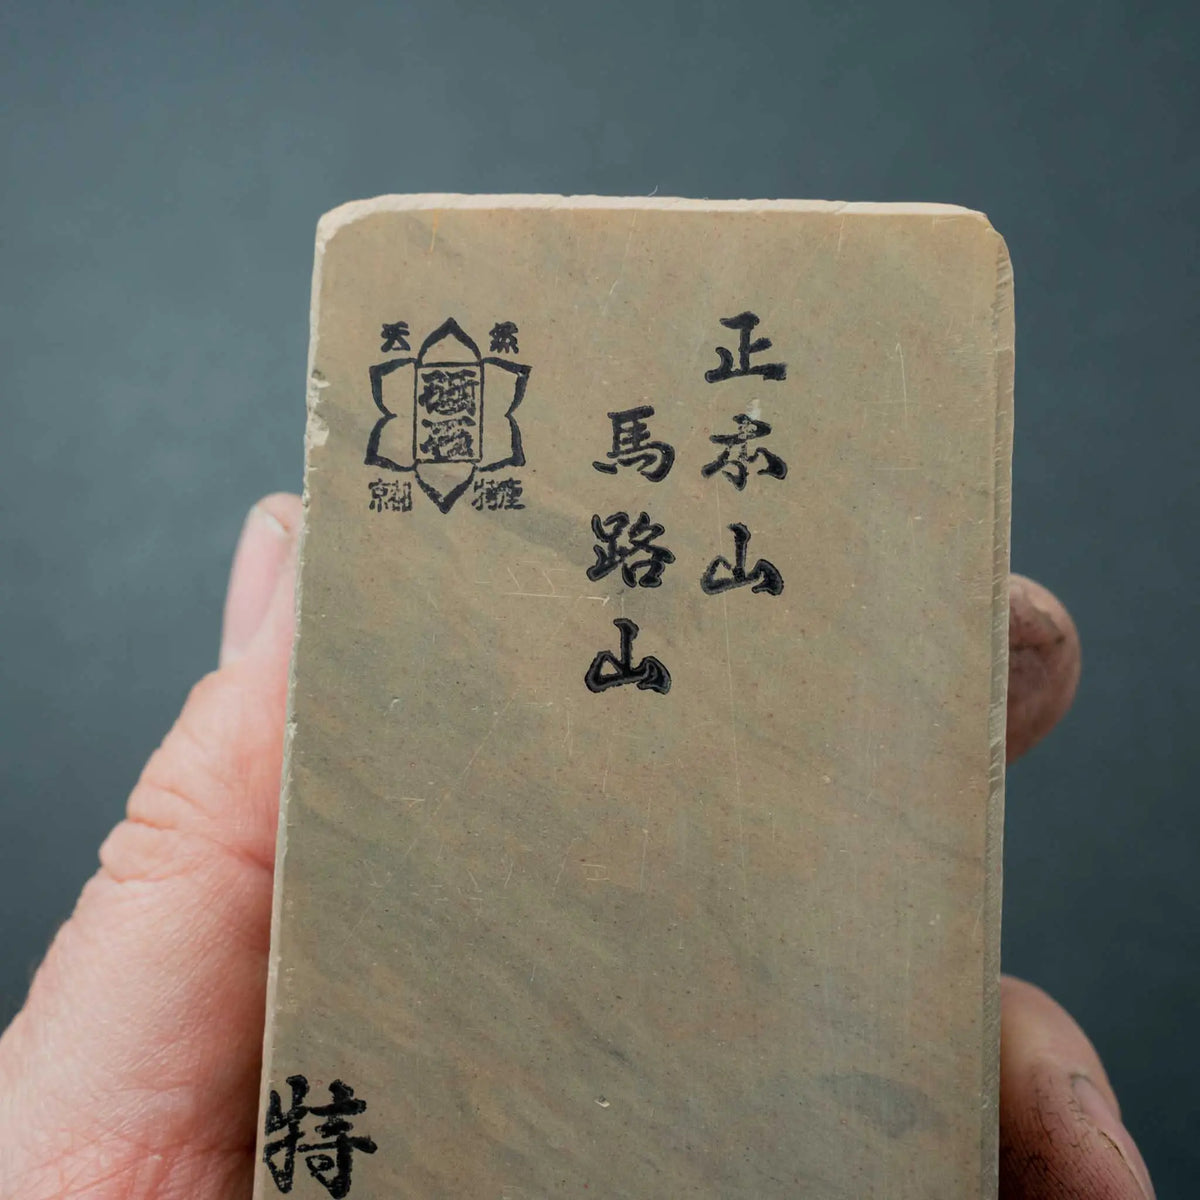 正本山
馬路山
天然
砥石
京都
特産
特